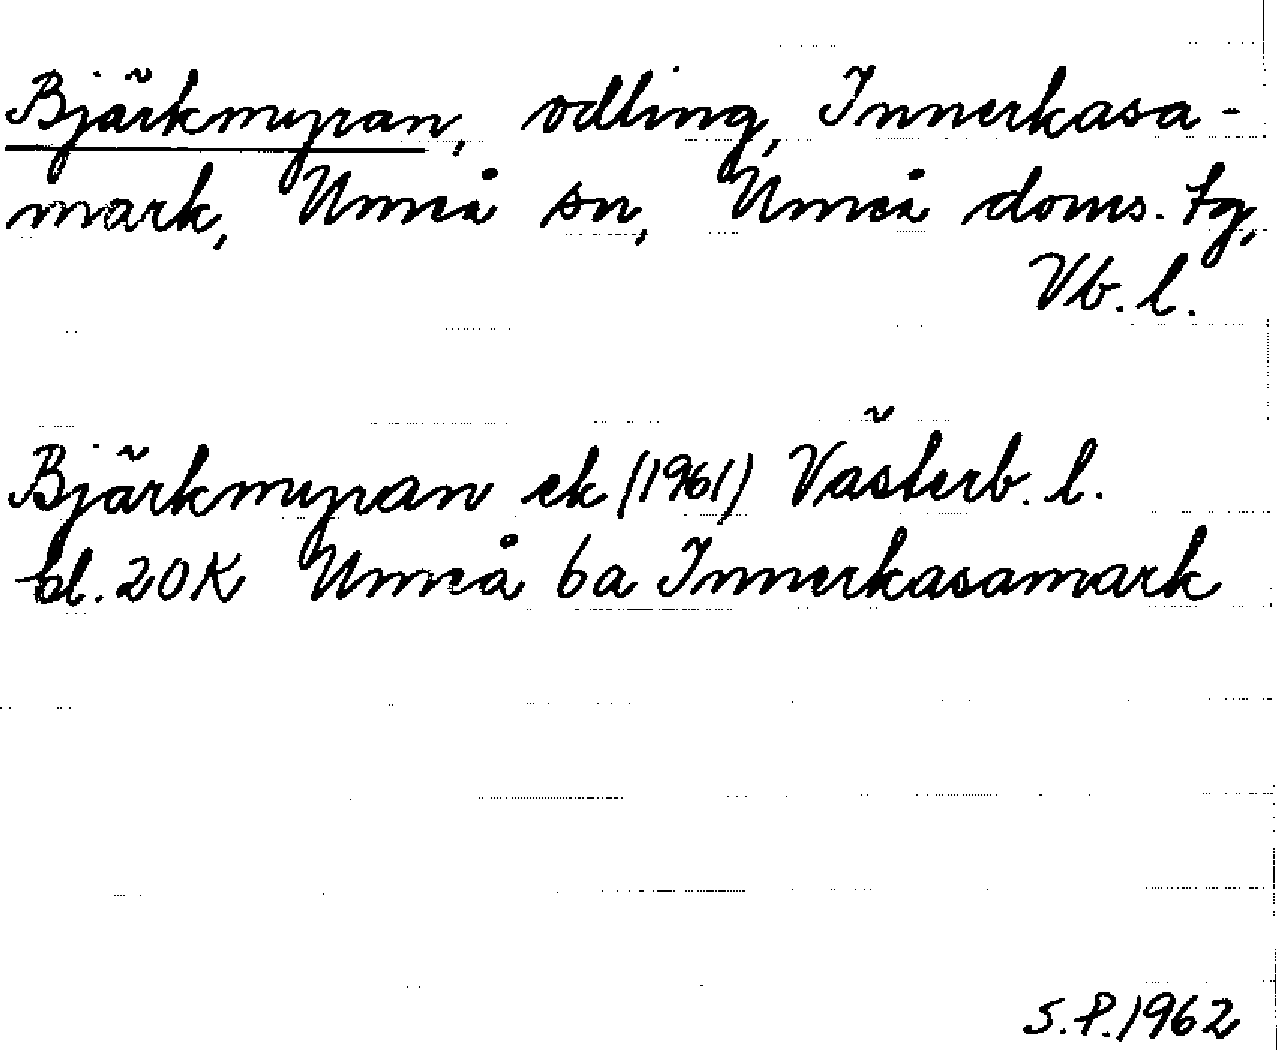 Bjärkmyran, odling, Innerkasa-
mark, Umeå sn, Umeå doms. tg,
Vb. l.
Bjärkmyran ek (1961) Västerb. l.
bl. 20K Umeå 6a Innerkasamark
S.P. 1962